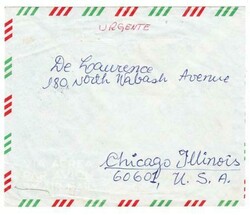 URGENTE
De Laurence
180, North Wabash Avenue
Chicago Illinois
60601, U. S. A.